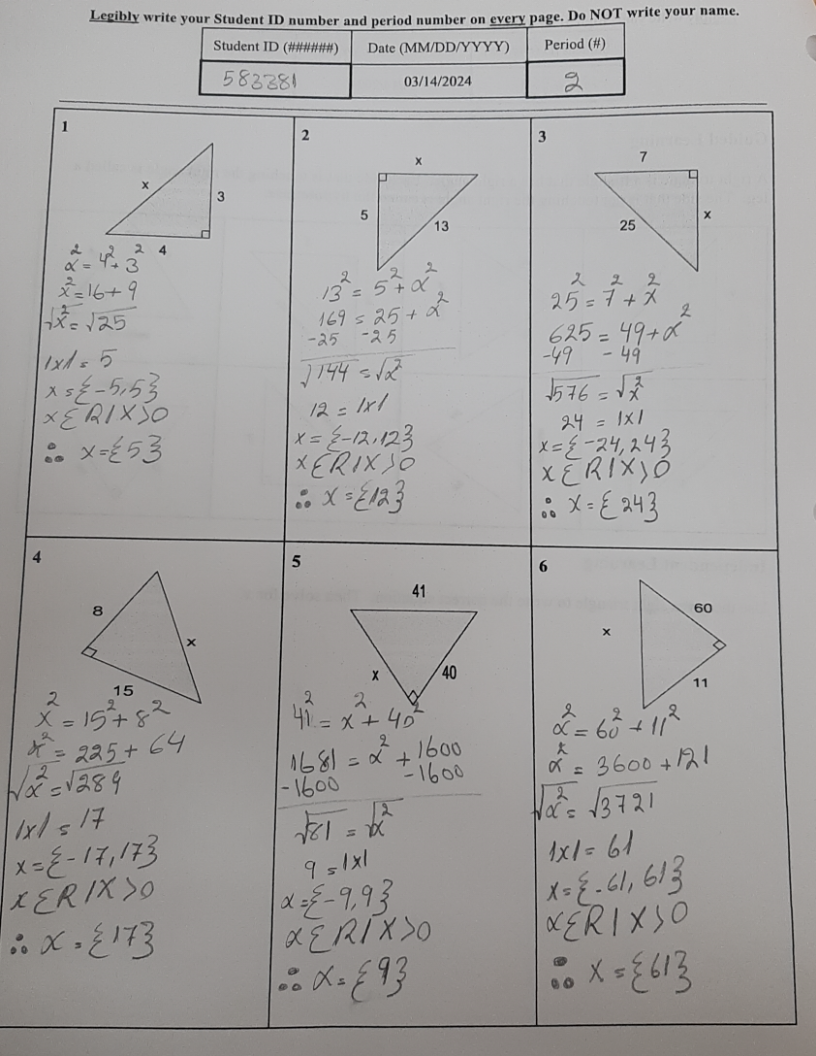 Legibly write your Student ID number and period number on every page. Do NOT write your name.
Student ID (######) Date (MM/DD/YYYY) Period (#)
583381 03/14/2024 2
1
x
3
4
x² = 4² + 3²
x² = 16 + 9
√x² = √25
|x| = 5
x = {-5,5}
x ∈ R | X > 0
∴ x = {5}
2
x
5
13
13² = 5² + x²
169 = 25 + x²
-25 -25
√144 = √x²
12 = |x|
x = {-12,12}
x ∈ R | X > 0
∴ x = {12}
3
7
25
x
25² = 7² + x²
625 = 49 + x²
-49 -49
√576 = √x²
24 = |x|
x = {-24,24}
x ∈ R | X > 0
∴ x = {24}
4
8
x
15
x² = 15² + 8²
x² = 225 + 64
√x² = √289
|x| = 17
x = {-17,17}
x ∈ R | X > 0
∴ x = {17}
5
41
x
40
41² = x² + 40²
1681 = x² + 1600
-1600 -1600
√81 = √x²
9 = |x|
x = {-9,9}
x ∈ R | X > 0
∴ x = {9}
6
60
x
11
x² = 60² + 11²
x² = 3600 + 121
√x² = √3721
|x| = 61
x = {-61, 61}
x ∈ R | X > 0
∴ x = {61}